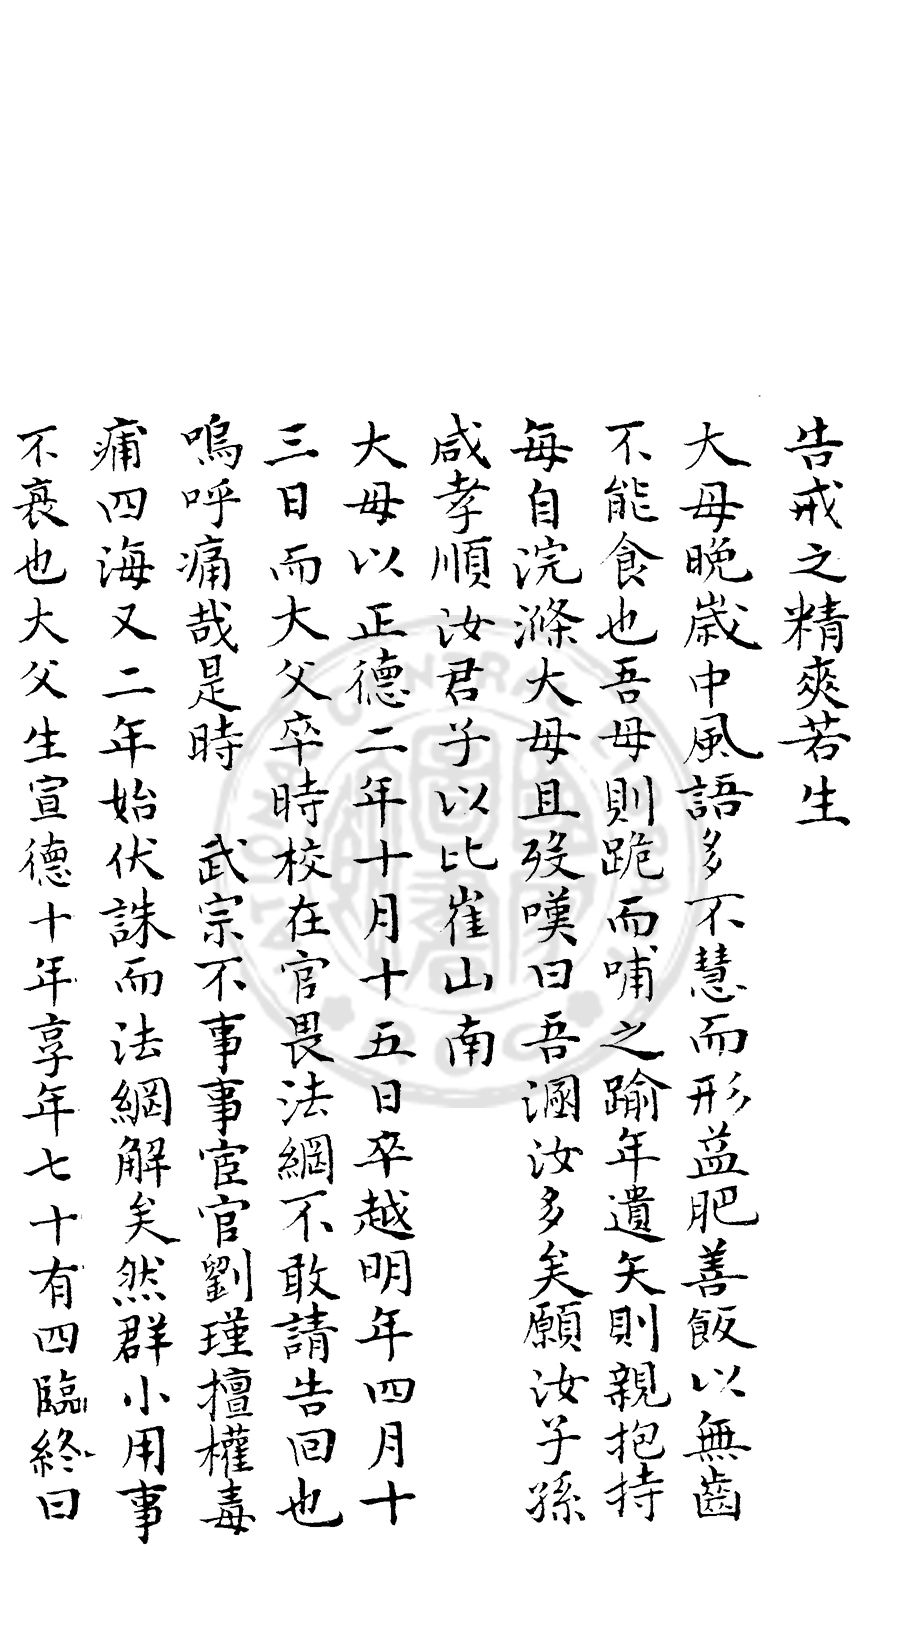 告戒之精爽若生
大母晚歲中風語多不慧而形益肥善飯以無齒
不能食也吾母則跪而哺之踰年遺矢則親抱持
每自浣滌大母且歿嘆曰吾溷汝多矣願汝子孫
咸孝順汝君子以比崔山南
大母以正德二年十月十五日卒越明年四月十
三日而大父卒時校在官畏法網不敢請告回也
嗚呼痛哉是時　武宗不事事宦官劉瑾擅權毒
痡四海又二年始伏誅而法網解矣然群小用事
不衰也大父生宣德十年享年七十有四臨終曰